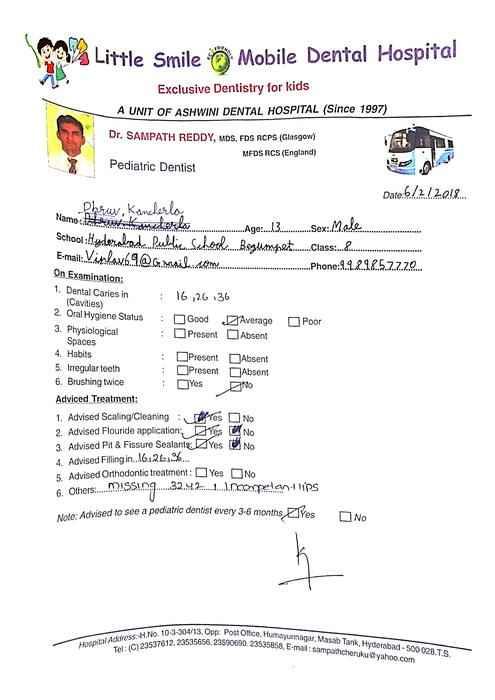 Little Smile Mobile Dental Hospital
Exclusive Dentistry for kids
A UNIT OF ASHWINI DENTAL HOSPITAL (Since 1997)
Dr. SAMPATH REDDY, MDS, FDS RCPS (Glasgow)
MFDS RCS (England)
Pediatric Dentist
Date: 6/2/2018
Dhruv, Kancherla
Name: Age: 13 Sex: Male
School: Hyderabad Public School Begumpet Class: 8
E-mail: Vinlav69@Gmail.com Phone: 9989857770
On Examination:
1. Dental Caries in : 16, 26, 36
(Cavities)
2. Oral Hygiene Status : Good Average Poor
3. Physiological : Present Absent
Spaces
4. Habits : Present Absent
5. Irregular teeth : Present Absent
6. Brushing twice : Yes No
Adviced Treatment:
1. Advised Scaling/Cleaning : Yes No
2. Advised Flouride application: Yes No
3. Advised Pit & Fissure Sealants: Yes No
4. Advised Filling in 16,26,36
5. Advised Orthodontic treatment : Yes No
6. Others: missing 32,42, Incompetant lips
Note: Advised to see a pediatric dentist every 3-6 months Yes No
Hospital Address:-H.No. 10-3-304/13, Opp: Post Office, Humayunnagar, Masab Tank, Hyderabad - 500 028.T.S.
Tel : (C) 23537612, 23535656, 23590690, 23535858, E-mail : sampathcheruku@yahoo.com